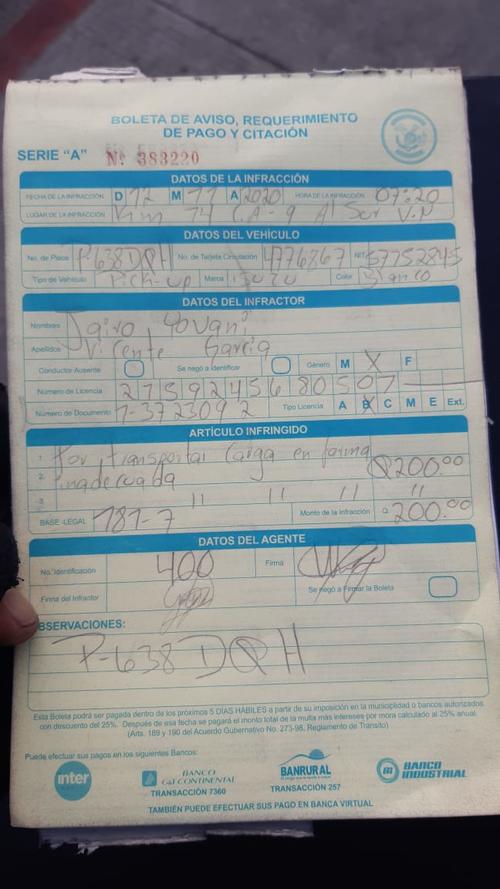 BOLETA DE AVISO, REQUERIMIENTO
DE PAGO Y CITACIÓN
SERIE "A" Nº 383220
DATOS DE LA INFRACCIÓN
FECHA DE LA INFRACCIÓN D 12 M 11 A 2020 HORA DE LA INFRACCIÓN 07:20
LUGAR DE LA INFRACCIÓN Km 74 C.A-9 Al Sur V.N
DATOS DEL VEHÍCULO
No. de Placa P-638DQH No. de Tarjeta Circulación 4776867 NIT 57752845
Tipo de Vehículo Pick-up Marca Isuzu Color Blanco
DATOS DEL INFRACTOR
Nombres Jairo Yovani
Apellidos Vicente Garcia
Conductor Ausente Se negó a Identificar Género M X F
Número de Licencia 2759245680507
Número de Documento 1-3723092 Tipo Licencia A B C M E Ext.
ARTÍCULO INFRINGIDO
1. Por transportar carga en forma
2. inadecuada Q200.00
3. " " " "
BASE LEGAL 181-7 Monto de la Infracción Q 200.00
DATOS DEL AGENTE
No. Identificación 400 Firma
Firma del Infractor Se negó a Firmar la Boleta
OBSERVACIONES:
P-638DQH
Esta Boleta podrá ser pagada dentro de los próximos 5 DIAS HABILES a partir de su imposición en la municiplidad o bancos autorizados
con descuento del 25%. Después de esa fecha se pagará el monto total de la multa más intereses por mora calculado al 25% anual.
(Arts. 189 y 190 del Acuerdo Gubernativo No. 273-98, Reglamento de Tránsito)
Puede efectuar sus pagos en los siguientes Bancos:
inter
Banco
BANCO
G&T CONTINENTAL
TRANSACCIÓN 7360
BANRURAL
TRANSACCIÓN 257
BANCO
INDUSTRIAL
TAMBIÉN PUEDE EFECTUAR SUS PAGO EN BANCA VIRTUAL